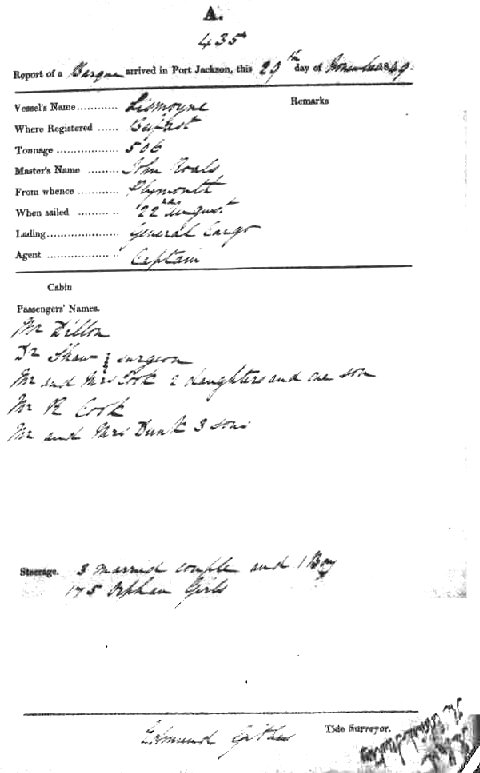 A.
435
Report of a Barque arrived in Port Jackson, this 29th day of November 49.
Vessel's Name ........... Lismoyne
Remarks
Where Registered ...... Belfast
Tonnage .................. 506
Master's Name ........ John Roals
From whence ........... Plymouth
When sailed .......... 22nd August
Lading..................... General Cargo
Agent ..................... Captain
Cabin
Passengers' Names.
Mr Dillon
Dr Shaw surgeon
Mr and Mrs Cook 2 daughters and one son
Mr R Cook
Mr and Mrs Dunk 3 sons
Steerage. 3 married couple and 1 Boy
175 Orphan Girls
Edmund
Tide Surveyor.